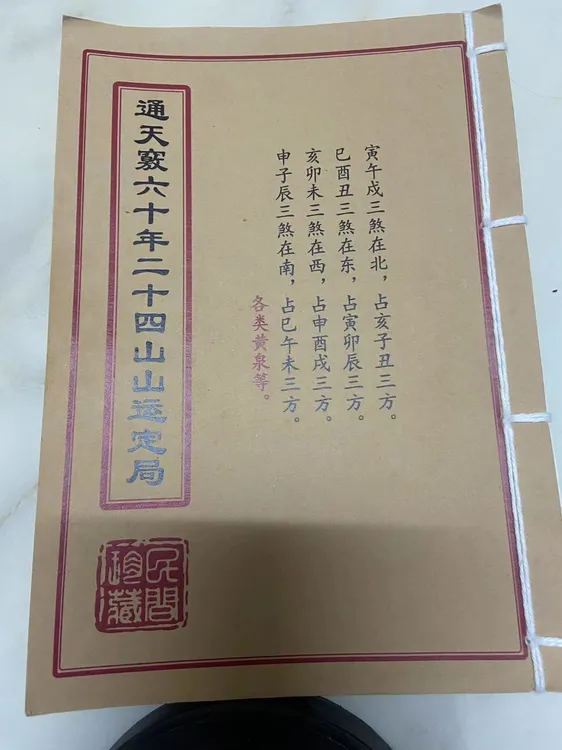 寅午戌三煞在北，占亥子丑三方。
巳酉丑三煞在东，占寅卯辰三方。
亥卯未三煞在西，占申酉戌三方。
申子辰三煞在南，占巳午未三方。
各类黄泉等。
通天竅六十年二十四山山运定局
民间
珍藏